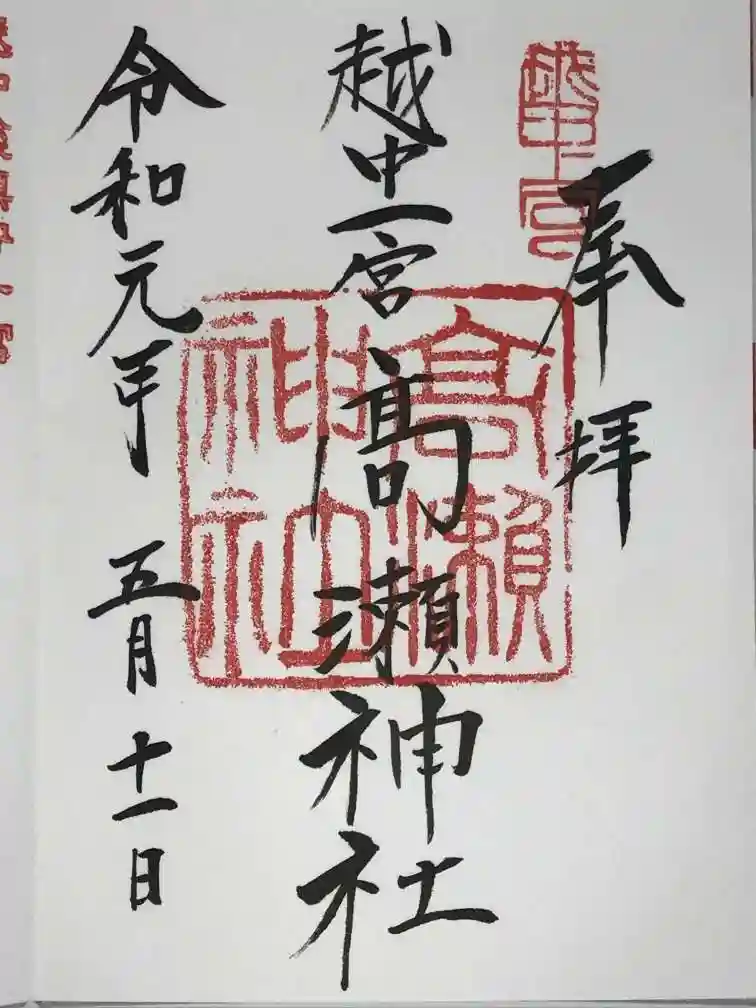 奉拝
越中一宮
越中一宮髙瀬神社
高瀬神社
令和元年五月十一日